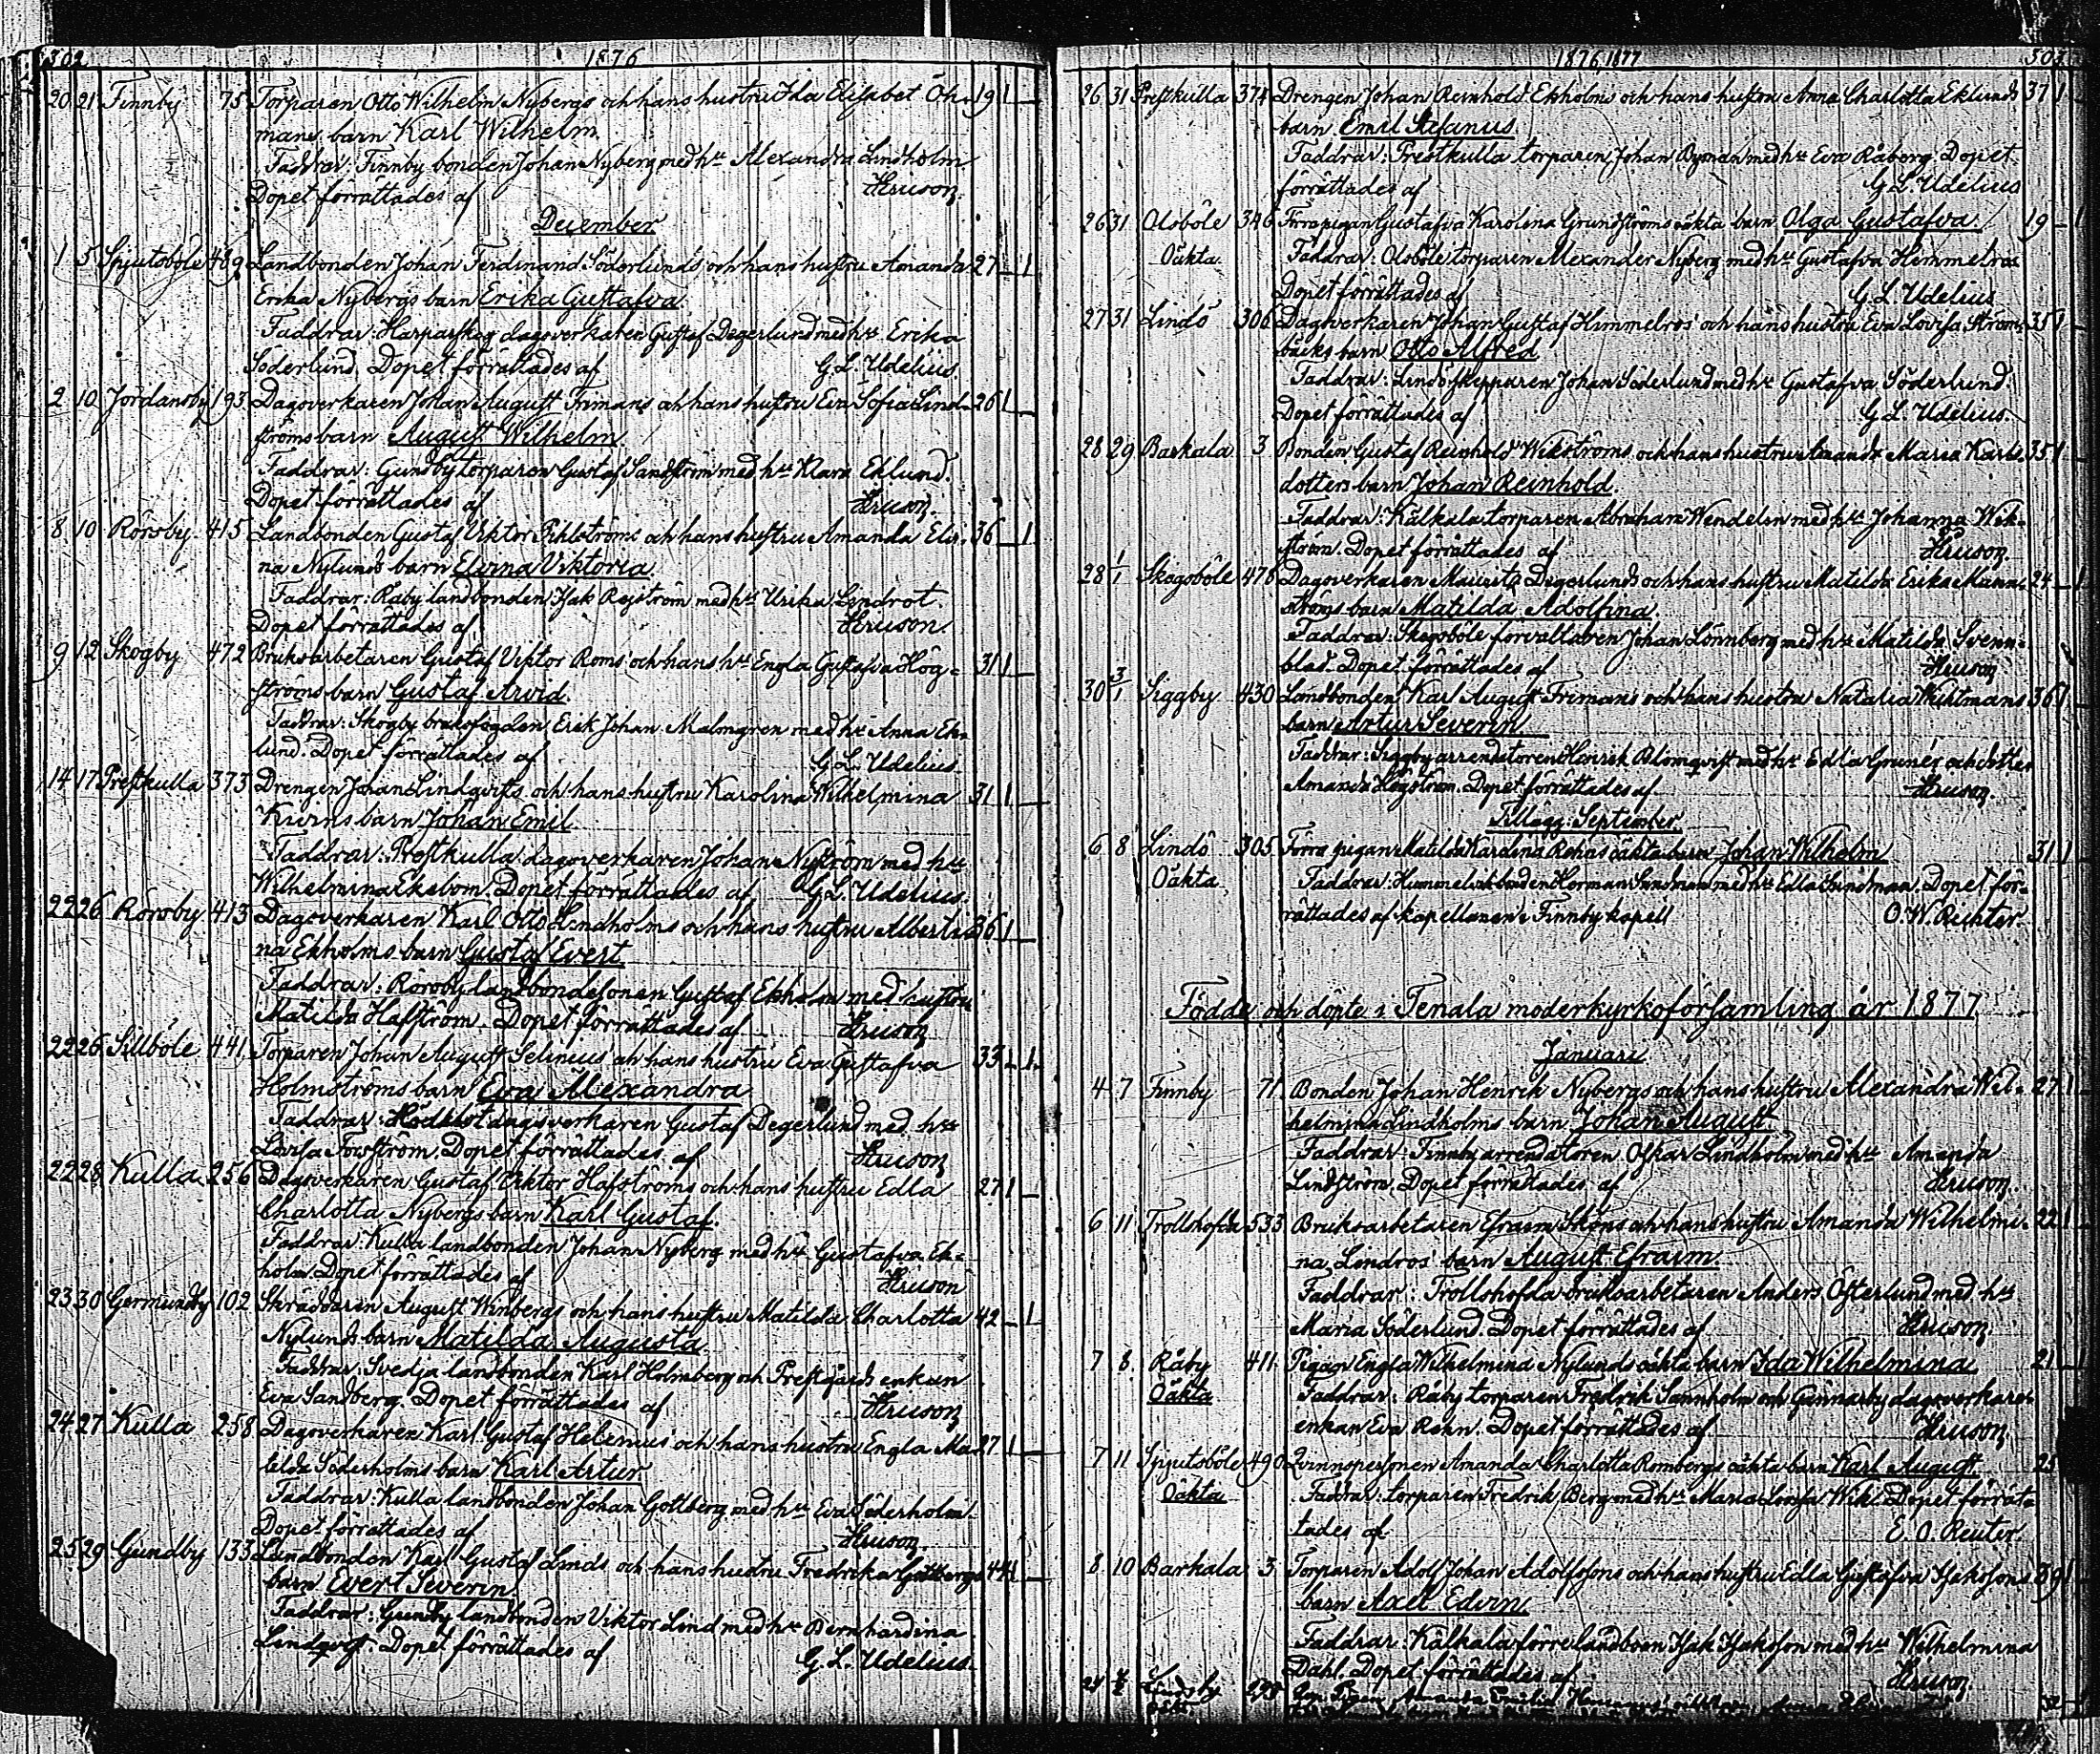 302 1876
20 21 Finnby 75 Torparen Otto Wilhelm Nybergs och hans hustru Ida Elisabet Öh- 19 1
mans barn Karl Wilhelm
Faddrar: Finnby bonden Johan Nyberg med hu Alexandra Lindholm
Dopet förrättades af Heuson.
December
1 5 Spjutsböle 489 Landbonden Johan Ferdinand Söderlunds och hans hustru Amanda 27 1
Erika Nybergs barn Erika Gustafva
Faddrar: Harparskog dagsverkaren Gustaf Degerlund med hu Erika
Söderlund. Dopet förrättades af G L. Udelius.
2 10 Jordansby 193 Dagsverkaren Johan August Frimans och hans hustru Eva Sofia Lind- 26 1
ströms barn August Wilhelm
Faddrar: Gunsby torparen Gustaf Sandström med hu Klara Eklund.
Dopet förrättades af Heuson.
8 10 Rörsby 415 Landbonden Gustaf Viktor och hans hustru Amanda Eli- 36 1
na Nylunds barn Elvina Viktoria
Faddrar: Råby landbonden Isak med hu Ulrika Lindrot.
Dopet förrättades af Heuson.
9 12 Skogby 472 Bruksarbetaren Gustaf Viktor Roms och hans hu Engla Gustafva Hög- 31 1
ströms barn Gustaf Arvid
Faddrar: Skogby bruksfogden Erik Johan Malmgren med hu Anna Ek-
lund. Dopet förrättades af G L. Udelius.
14 17 Prestkulla 373 Drengen Johan Lindqvists och hans hustru Karolina Wilhelmina 31 1
barn Johan Emil
Faddrar: Prestkulla dagsverkaren Johan Nyström med hu
Wilhelmina Ekebom. Dopet förrättades af G. L. Udelius.
22 26 Rörsby 413 Dagsverkaren Karl Otto Lindholms och hans hustru Alberti- 36 1
na Ekholms barn Gustaf Evert
Faddrar: Rörsby landbondesonen Gustaf Ekholm med hustru
Matilda Hafström. Dopet förrättades af Heuson
22 26 Sillböle 441 Torparen Johan August Selinius och hans hustru Eva Gustafva 33 1
Holmströms barn Eva Alexandra
Faddrar: dagsverkaren Gustaf Degerlund med hu
Lovisa Forsström. Dopet förrättades af Heuson
22 28 Kulla 256 Dagsverkaren Gustaf Viktor Hafströms och hans hustru Edla 27 1
Charlotta Nybergs barn Karl Gustaf.
Faddrar: Kulla landbonden Johan Nyberg med hu Gustafva Ek-
holm Dopet förrättades af Heuson
23 30 Germundby 102 Skräddaren August Winbergs och hans hustru Matilda Charlotta 42 1
Nylunds barn Matilda Augusta
Faddrar: Svedja landbonden Karl Holmberg och Prestgårds enkan
Eva Sandberg. Dopet förrättades af Heuson
24 27 Kulla 258 Dagsverkaren Karl Gustaf Helenius och hans hustru Engla Ma- 27 1
tilda Söderholms barn Karl Artur
Faddrar: Kulla landbonden Johan Gottberg med hu Eva Söderholm
Dopet förrättades af Heuson.
25 29 Gundby 133 Landbonden Karl Gustaf Linds och hans hustru Fredrika Gottbergs 44 1
barn Evert Severin
Faddrar: Gundby landbonden Viktor Lind med hu Bernhardina
Lindqvist. Dopet förrättades af G. L. Udelius.
1876, 1877 303
26 31 Prestkulla 374 Drengen Johan Reinhold Ekholms och hans hustru Anna Charlotta Eklunds 37 1
barn Emil Stefanus
Faddrar: Prestkulla torparen Johan Byman med hu Eva Råberg. Dopet
förrättades af G L. Udelius
26 31 Olsböle 346 Förra pigan Gustafva Karolina Grundströms oäkta barn Olga Gustafva. 19 1
Oäkta. Faddrar: Olsböle torparen Alexander Nyberg med hu Gustafva Himmelros
Dopet förrättades af G L. Udelius
27 31 Lindö 306 Dagsverkaren Johan Gustaf Himmelros' och hans hustru Eva Lovisa Ström- 35 1
bäcks barn Otto Alfred
Faddrar: Lindö skepparen Johan Söderlund med hu Gustafva Söderlund.
Dopet förrättades af G L. Udelius.
28 29 Barkala 3 Bonden Gustaf Reinhold Wikströms och hans hustru Amanda Maria Karls- 35 1
dotters barn Johan Reinhold.
Faddrar: Kälkala torparen Abraham Wendelin med hu Johanna Wik-
ström. Dopet förrättades af Heuson
28 1/1 Skogsböle 478 Dagsverkaren Degerlunds och hans hustru Matilda Erika 24 1
ströms barn Matilda Adolfina.
Faddrar: Skogsböle förvaltaren Johan Lönnberg med hu Matilda Svenn-
blad. Dopet förrättades af Heuson
30 3/1 Siggby 430 Landbonden Karl August Frimans och hans hustru Natalia Wihtmans 36 1
barn Artur Severin
Faddrar: Siggby arrendatoren Henrik Blomqvist med hu Edla Grunér och dotter
Amanda Högström. Dopet förrättades af Heuson.
Tillägg: September.
6 8 Lindö 305 Förra pigan Matilda Karolina Rehns oäkta barn Johan Wilhelm 31 1
Oäkta. Faddrar: bonden Herman Sundman med hu Edla Sundman. Dopet för-
rättades af kapellanen i Finnby kapell O. W. Richter.
Födde och döpte i Tenala moderkyrkoförsamling år 1877
Januari
4 7 Finnby 71 Bonden Johan Henrik Nybergs och hans hustru Alexandra Wil- 27 1
helmina Lindholms barn Johan August
Faddrar: Finnby arrendatoren Oskar Lindholm med hu Amanda
Lindström. Dopet förrättades af Heuson.
6 11 Trollshofda 533 Bruksarbetaren Efraim Sköns och hans hustru Amanda Wilhelmi- 22 1
na Lindros' barn August Efraim.
Faddrar: Trollshofda bruksarbetaren Anders Österlund med hu
Maria Söderlund. Dopet förrättades af Heuson.
7 8 Råby 411 Pigan Engla Wilhelmina Nylunds oäkta barn Ida Wilhelmina 21 1
Oäkta Faddrar: Råby torparen Fredrik Sannholm och Gennarby dagsverkare-
enkan Eva Rehn. Dopet förrättades af Heuson
7 11 Spjutsböle 490 Qvinnspersonen Amanda Charlotta Rombergs oäkta barn Karl August 25
Oäkta Faddrar: torparen Fredrik Berg med hu Maria Lovisa Wik. Dopet förrät-
tades af E. O. Reuter.
8 10 Barkala 3 Torparen Adolf Johan Adolfssons och hans hustru Edla Gustafva Isakssons 39 1
barn Axel Edvin.
Faddrar: Kälkala förre landbon Isak Isaksson med hu Wilhelmina
Dahl. Dopet förrättades af Heuson.
24 Lindsby Pigan Amanda Emilia